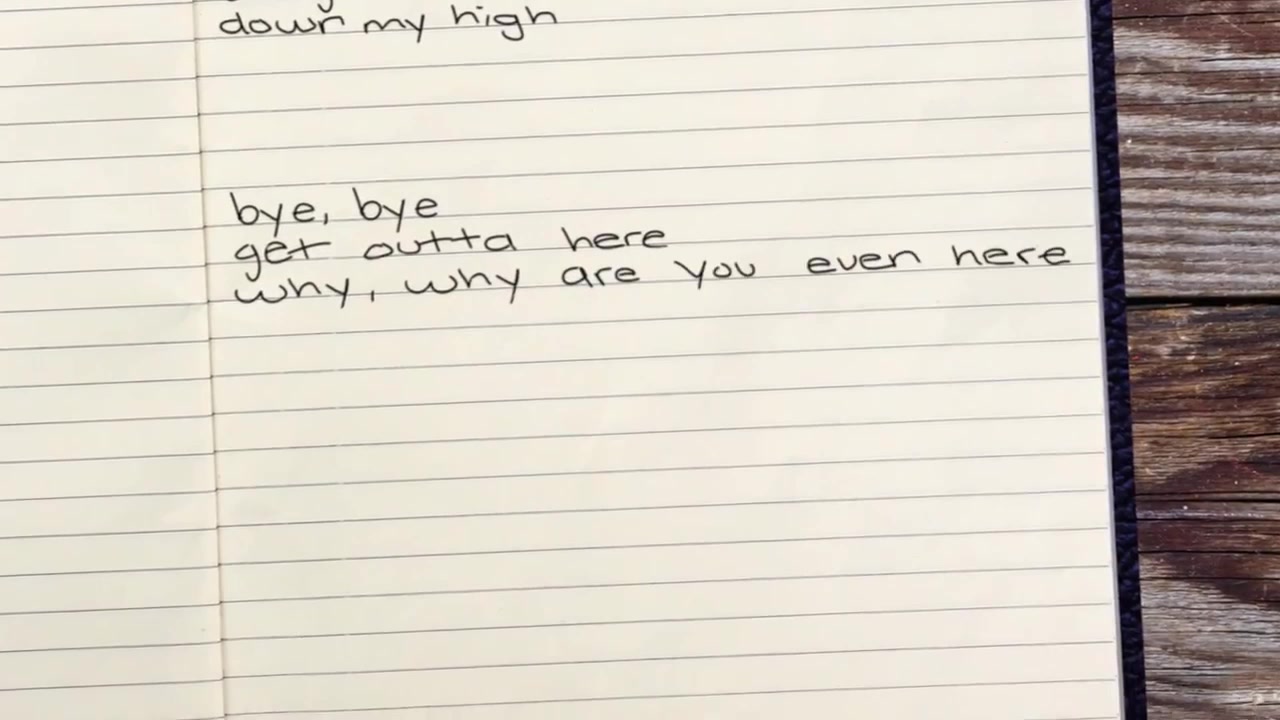 down my high
bye, bye
get outta here
why, why are you even here